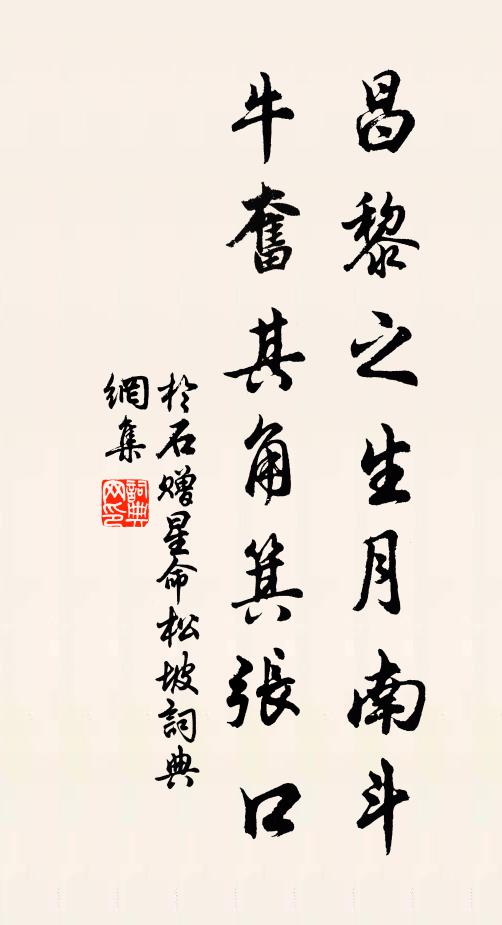 昌黎之生月南斗
牛奮其角箕張口
於石赠星命松坡詞典
網集
詞典網印